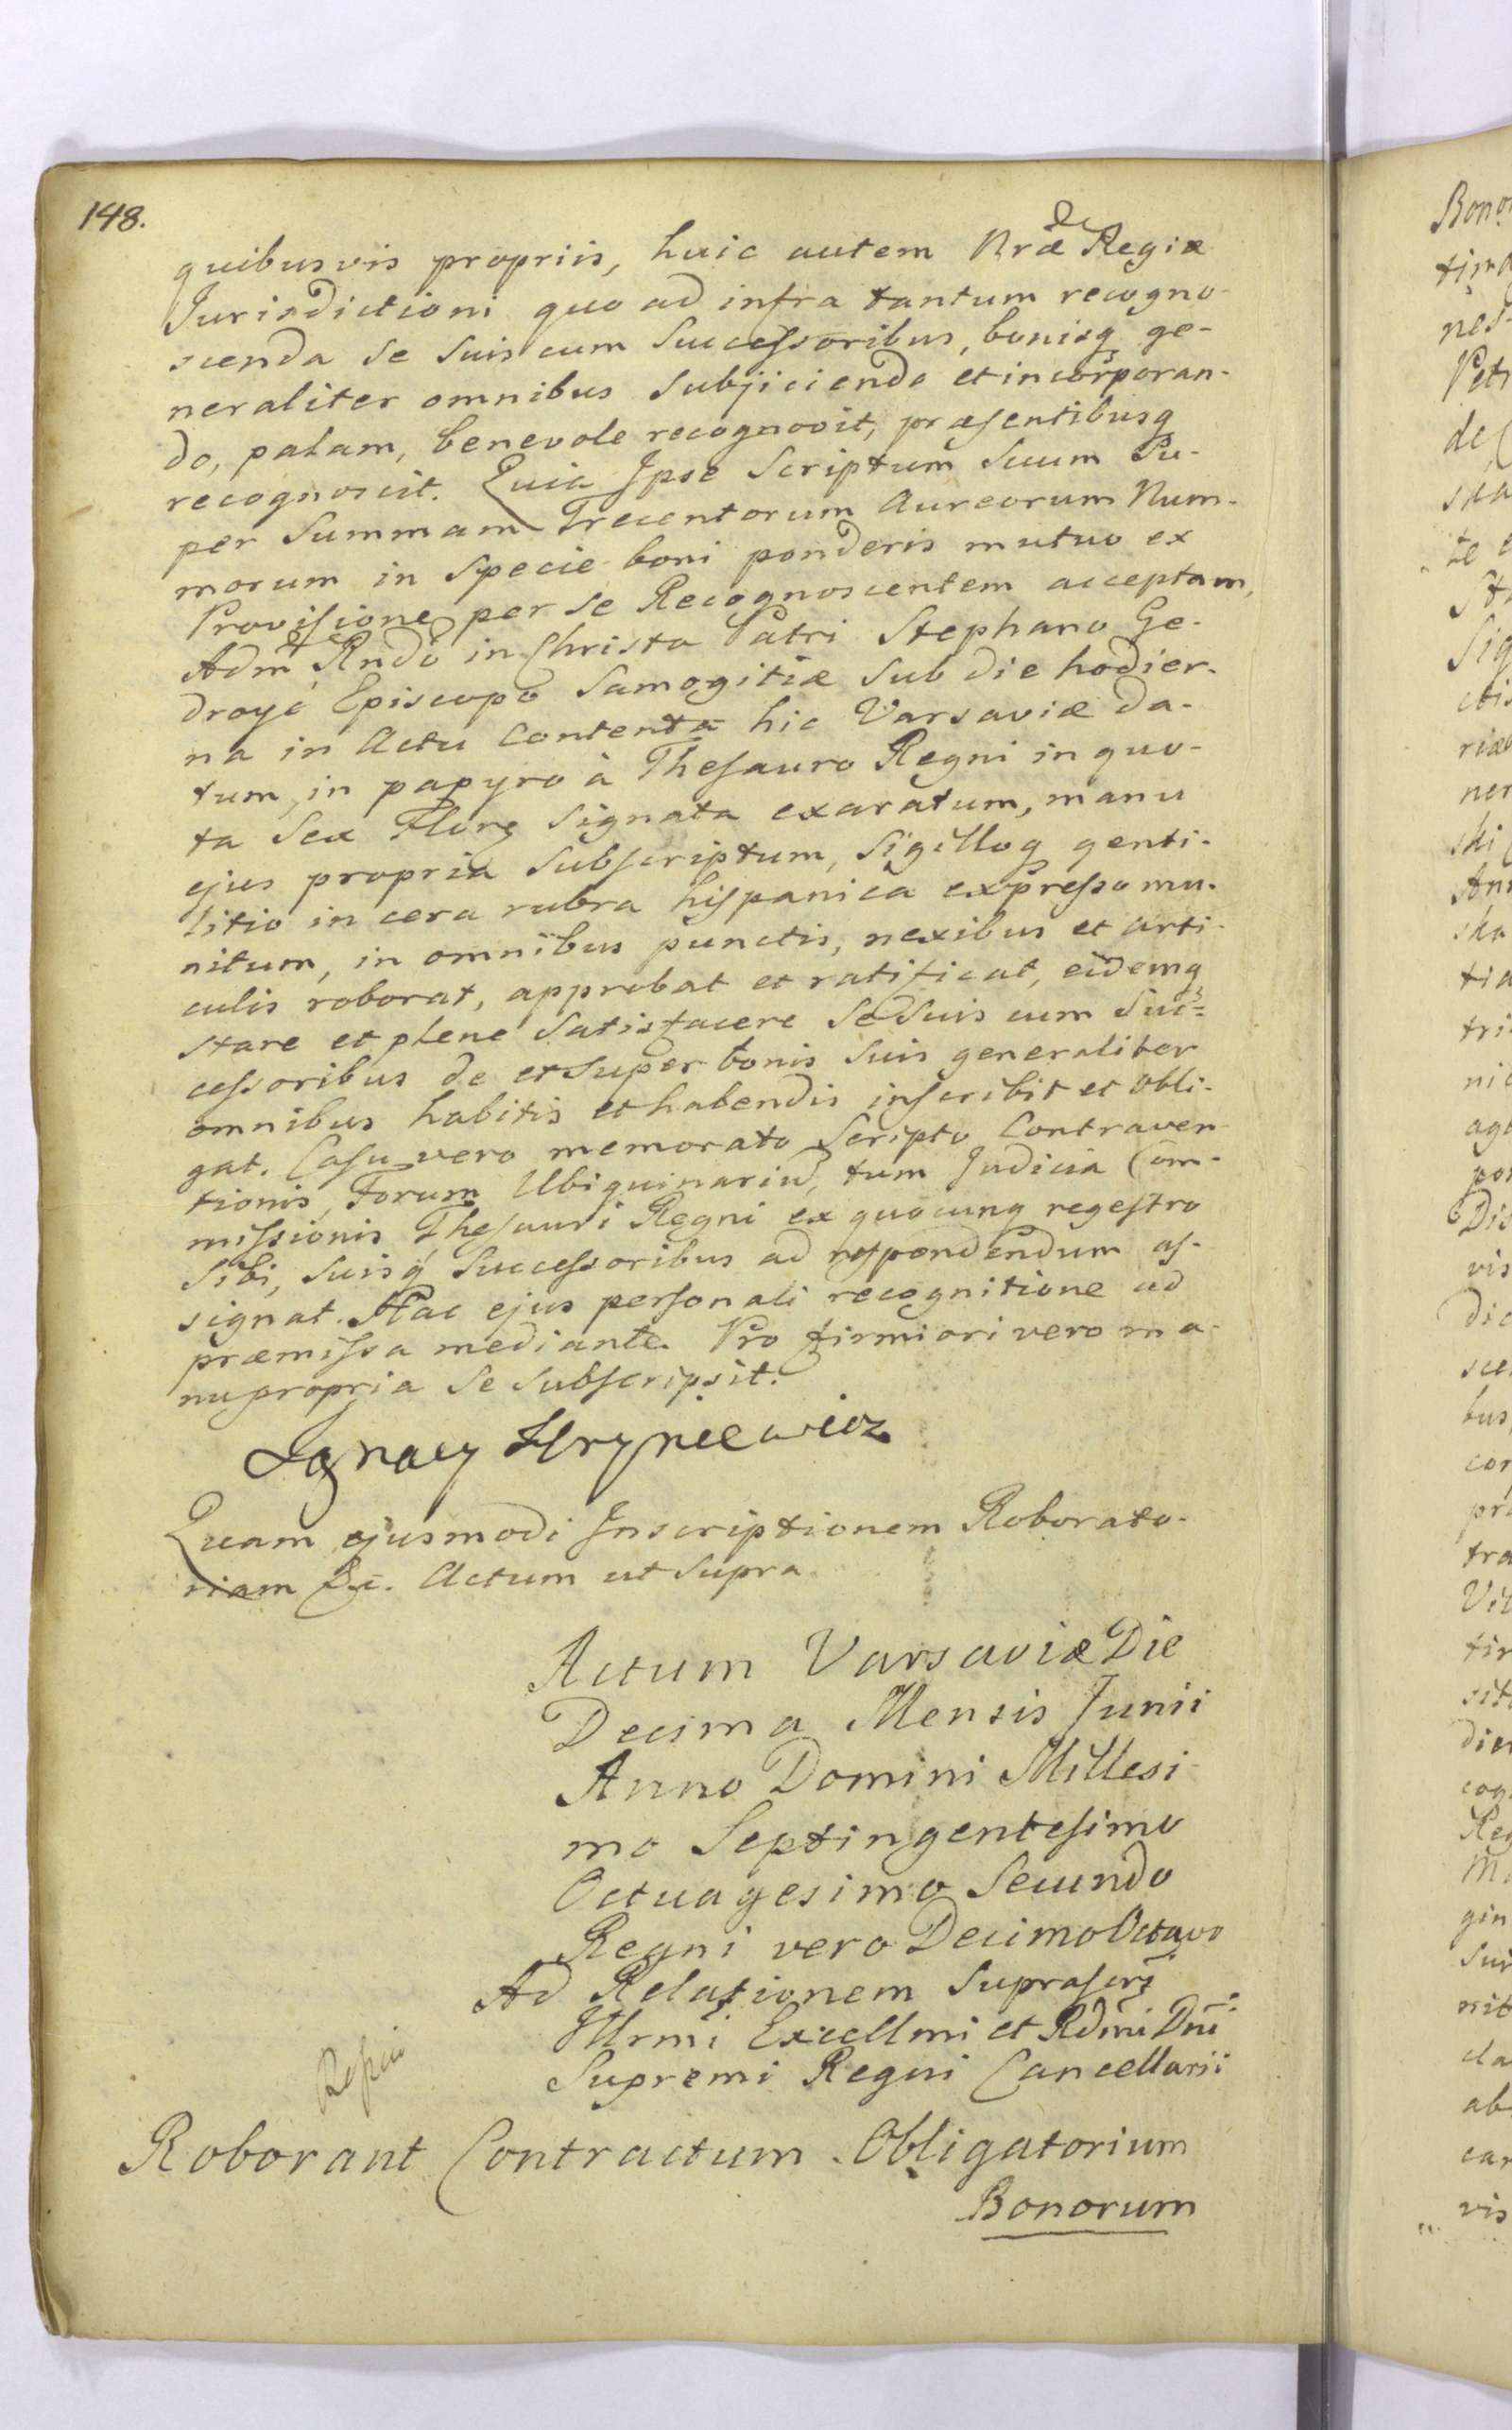 148.
quibusvis propriis, huic autem Nræ Regiæ
Jurisdictioni quo ad infra tantum recogno-
scenda se suis cum Successoribus, bonisq ge-
neraliter omnibus Subjiciendo et incorporan-
do, palam, benevole recognovit, præsentibusq
recognoscit. Quia Ipse Scriptum Suum Su-
per Summam Trecentorum Aureorum Num-
morum in Specie boni ponderis mutuo ex
Provisione per se Recognoscentem acceptam,
Adm Rndo in Christo Patri Stephano Ge-
droyc Episcopo Samogitiæ Sub die hodier-
na in Actu Contenta hic Varsaviæ da-
tum, in papyro à Thesauro Regni in quo-
ta Sex Flors Signata exaratum, manu
ejus propria Subscriptum, Sigilloq genti-
litio in cera rubra hispanica expresso mu-
nitum, in omnibus punctis, nexibus et arti-
culis roborat, approbat et ratificat, eidemq
stare et plene Satisfacere Se Suis cum Suc-
cessoribus de et Super bonis Suis generaliter
omnibus habitis et habendis inscribit et obli-
gat. Casu vero memorato Scripto Contraven-
tionis, Forum Ubiquinariu, tum Judicia Com-
missionis Thesauri Regni ex quocunq regestro
Sibi, Suisq Successoribus ad respondendum as-
signat. Hac ejus personali recognitione ad
præmissa mediante. Pro firmiori vero ma-
nu propria Se Subscripsit.
Ignacy Hryniewicz
Quam ejusmodi Inscriptionem Roborato-
riam &c. Actum ut Supra
Actum Varsaviæ Die
Decima Mensis Junii
Anno Domini Millesi-
mo Septingentesimo
Octuagesimo Secundo
Regni vero Decimo Octavo
Ad Relationem Suprascri
Illrmi Excellmi et Rdmi Dni
Supremi Regni Cancellarii
Roborant Contractum Obligatorium
Bonorum